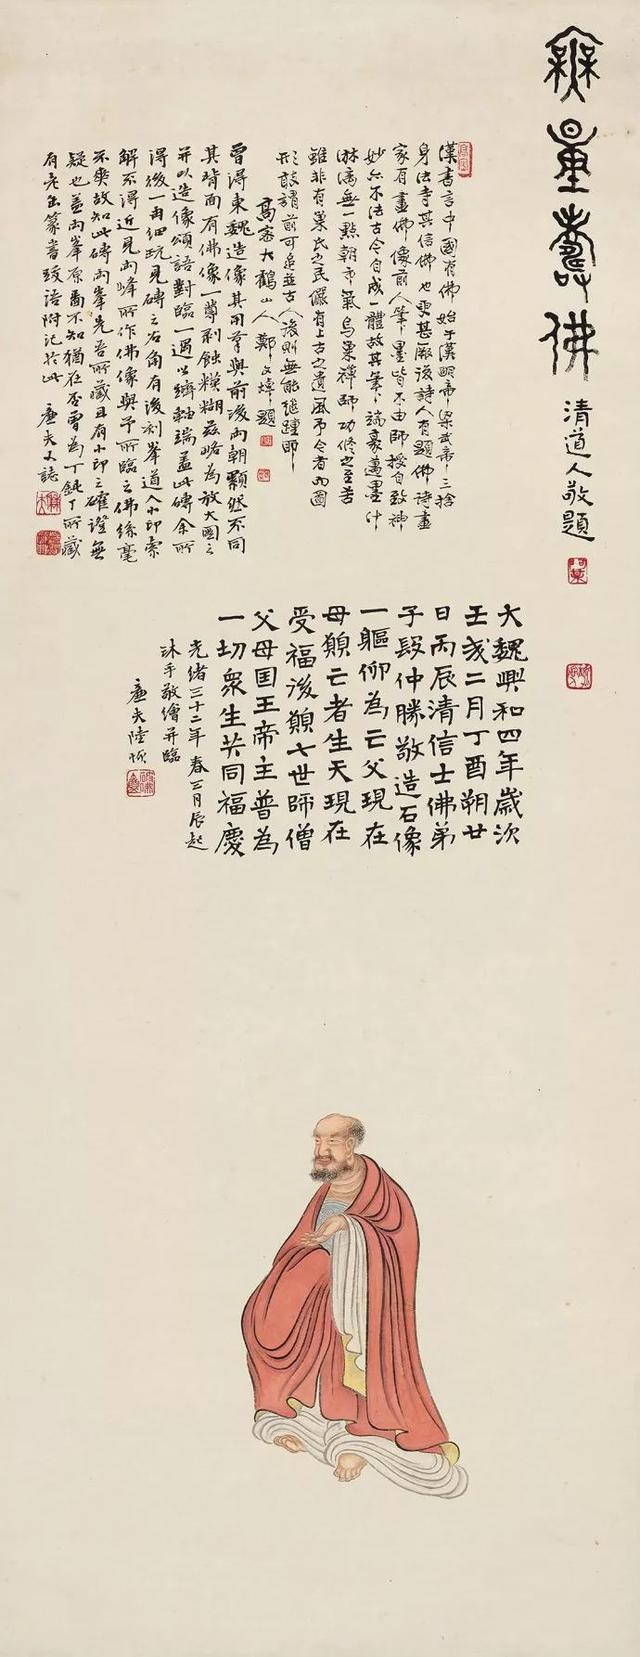 無量壽佛
清道人敬題
漢書言中國有佛始于漢明帝梁武帝三捨
身法寺其信佛也更甚厥後詩人有題佛詩畫
家有畫佛像前人筆墨皆不由師授自致神
妙亦不法古今自成一體故其筆端豪蕩墨汁
淋漓無一點朝市氣鳥巢禪師功修之至苦
雖非有巢氏之民儼有上古之遺風予今者而圖
形敢謂前可追並古人後則無能繼踵耶
高密大鶴山人鄭文焯題
曾得東魏造像其用筆與前後兩朝顯然不同
其背面有佛像一尊剥蝕糢糊茲略為放大圖之
并以造像頌語對臨一過以躋軸端蓋此磚余所
得後一再細玩見磚之右角有後刻峯道人小印索
解不得近見兩峰所作佛像與予所臨之佛絲毫
不爽故知此磚兩峯先吾所藏且有小印之確證無
疑也蓋兩峯原畵不知猶在否曾為丁鈍丁所藏
有老缶篆耑跋語附記於此
廉夫又誌
大魏興和四年歲次
壬戌二月丁酉朔廿
日丙辰清信士佛弟
子段仲勝敬造石像
一軀仰為亡父現在
母願亡者生天現在
受福後願七世師僧
父母国王帝主普為
一切衆生共同福慶
光緒三十二年春三月辰起
沐手敬繪并臨
廉夫陸恢